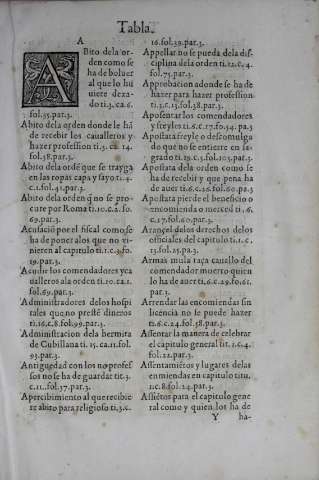 Tabla.
A
Abito dela or-
den como se
ha de boluer
al que lo hu
uiere dexa-
do ti.3.ca.6.
fol.35.par.3.
Abito dela orden donde le hã
de recebir los caualleros y
hazer profession ti.3. ca. 14.
fol.38.par.3.
Abito dela ordẽ que se trayga
en las ropas capa y sayo ti.4.
c.1.fol.41.par.3.
Abito dela orden q̃ no se pro-
cure por Roma ti.10.ca.5.fo.
69.par.3.
Acusaciõ por el fiscal como se
ha de poner alos que no vi-
nieren al capitulo ti.1.c.3.fo.
19.par.3.
Acudir los comendadores y ca
ualleros ala orden ti.10.ca.1.
fol.69.par.3.
Administradores delos hospi
tales que no preste dineros
ti.16.c.8.fol.99.par.3.
Administracion dela hermita
de Cubillana ti.15.ca.11.fol.
93.par.3.
Antiguedad con los no profes
sos no se ha de guardar tit.3.
c.11.fol.37.par.3.
Apercibimiento al que recibie
re abito para religioso ti.3.c.
16.fol.39.par.3.
Appellar no se pueda dela dis-
ciplina dela orden ti.12.c.4.
fol.75.par.3.
Approbacion adonde se ha de
hazer para hazer profession
ti.3.c.13.fol.38.par.3.
Aposentar los comendadores
y freyles ti.6.c.17.fo.54.pa.3
Apostata freyle o descomulga
do que no se entierre en sa-
grado ti.19.c.5.fol.105.par.3.
Apostata dela orden como se
ha de recebir y que pena ha
de auer ti.6.c.26.fol.60.pa.3
Apostata pierde el beneficio o
encomienda o merced ti.6.
c.17.fol.60.par.3.
Arançel delos derechos delos
officiales del capitulo ti.1.c.
15.fol.25.pa.3.
Armas mula taça cauallo del
comendador muerto quien
lo ha de auer ti.6.c.29.fo.61.
pa.3.
Arrendar las encomiendas sin
licencia no le puede hazer
ti.6.c.24.fol.58.par.3.
Assentar la manera de celebrar
el capitulo general tit.1.c.4.
fol.22.par.3.
Assentamiẽtos y lugares delas
enmiendas en capitulo titu.
1.c.8.fol.24.par.3.
Assiẽtos para el capitulo gene
ral como y quien los ha de
Y ha-